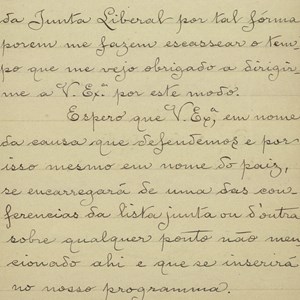 da Junta Liberal por tal fórma
porem me fazem escassear o tem-
po que me vejo obrigado a dirigir-
me a V. Ex.ª por este modo.
Espero que V. Ex.ª, em nome
da causa que defendemos e por
isso mesmo em nome do paiz,
se encarregará de uma das con-
ferencias da lista junta ou d'outra
sobre qualquer ponto não men-
cionado ahi e que se inserirá
no nosso programma.